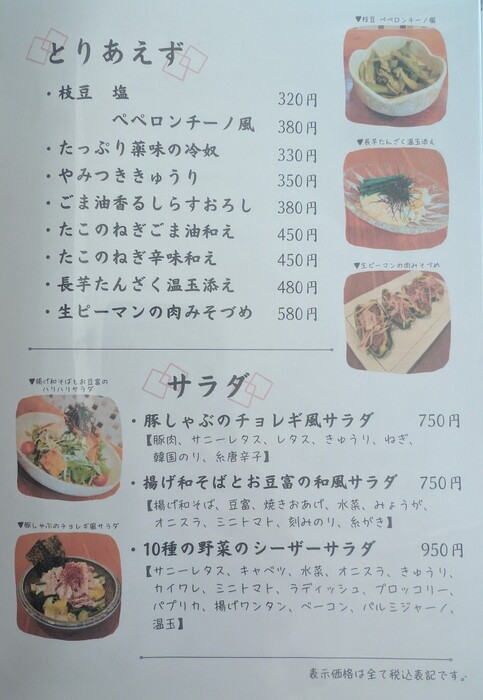 ▼枝豆 ペペロンチーノ風
とりあえず
・枝豆 塩 320円
ペペロンチーノ風 380円
・たっぷり薬味の冷奴 330円
・やみつききゅうり 350円
・ごま油香るしらすおろし 380円
・たこのねぎごま油和え 450円
・たこのねぎ辛味和え 450円
・長芋たんざく温玉添え 480円
・生ピーマンの肉みそづめ 580円
▼長芋たんざく温玉添え
▼生ピーマンの肉みそづめ
サラダ
▼揚げ和そばとお豆富の
ハリハリサラダ
・豚しゃぶのチョレギ風サラダ 750円
【豚肉、サニーレタス、レタス、きゅうり、ねぎ、
韓国のり、糸唐辛子】
・揚げ和そばとお豆富の和風サラダ 750円
【揚げ和そば、豆富、焼きおあげ、水菜、みょうが、
オニスラ、ミニトマト、刻みのり、糸がき】
▼豚しゃぶのチョレギ風サラダ
・10種の野菜のシーザーサラダ 950円
【サニーレタス、キャベツ、水菜、オニスラ、きゅうり、
カイワレ、ミニトマト、ラディッシュ、ブロッコリー、
パプリカ、揚げワンタン、ベーコン、パルミジャーノ、
温玉】
表示価格は全て税込表記です。